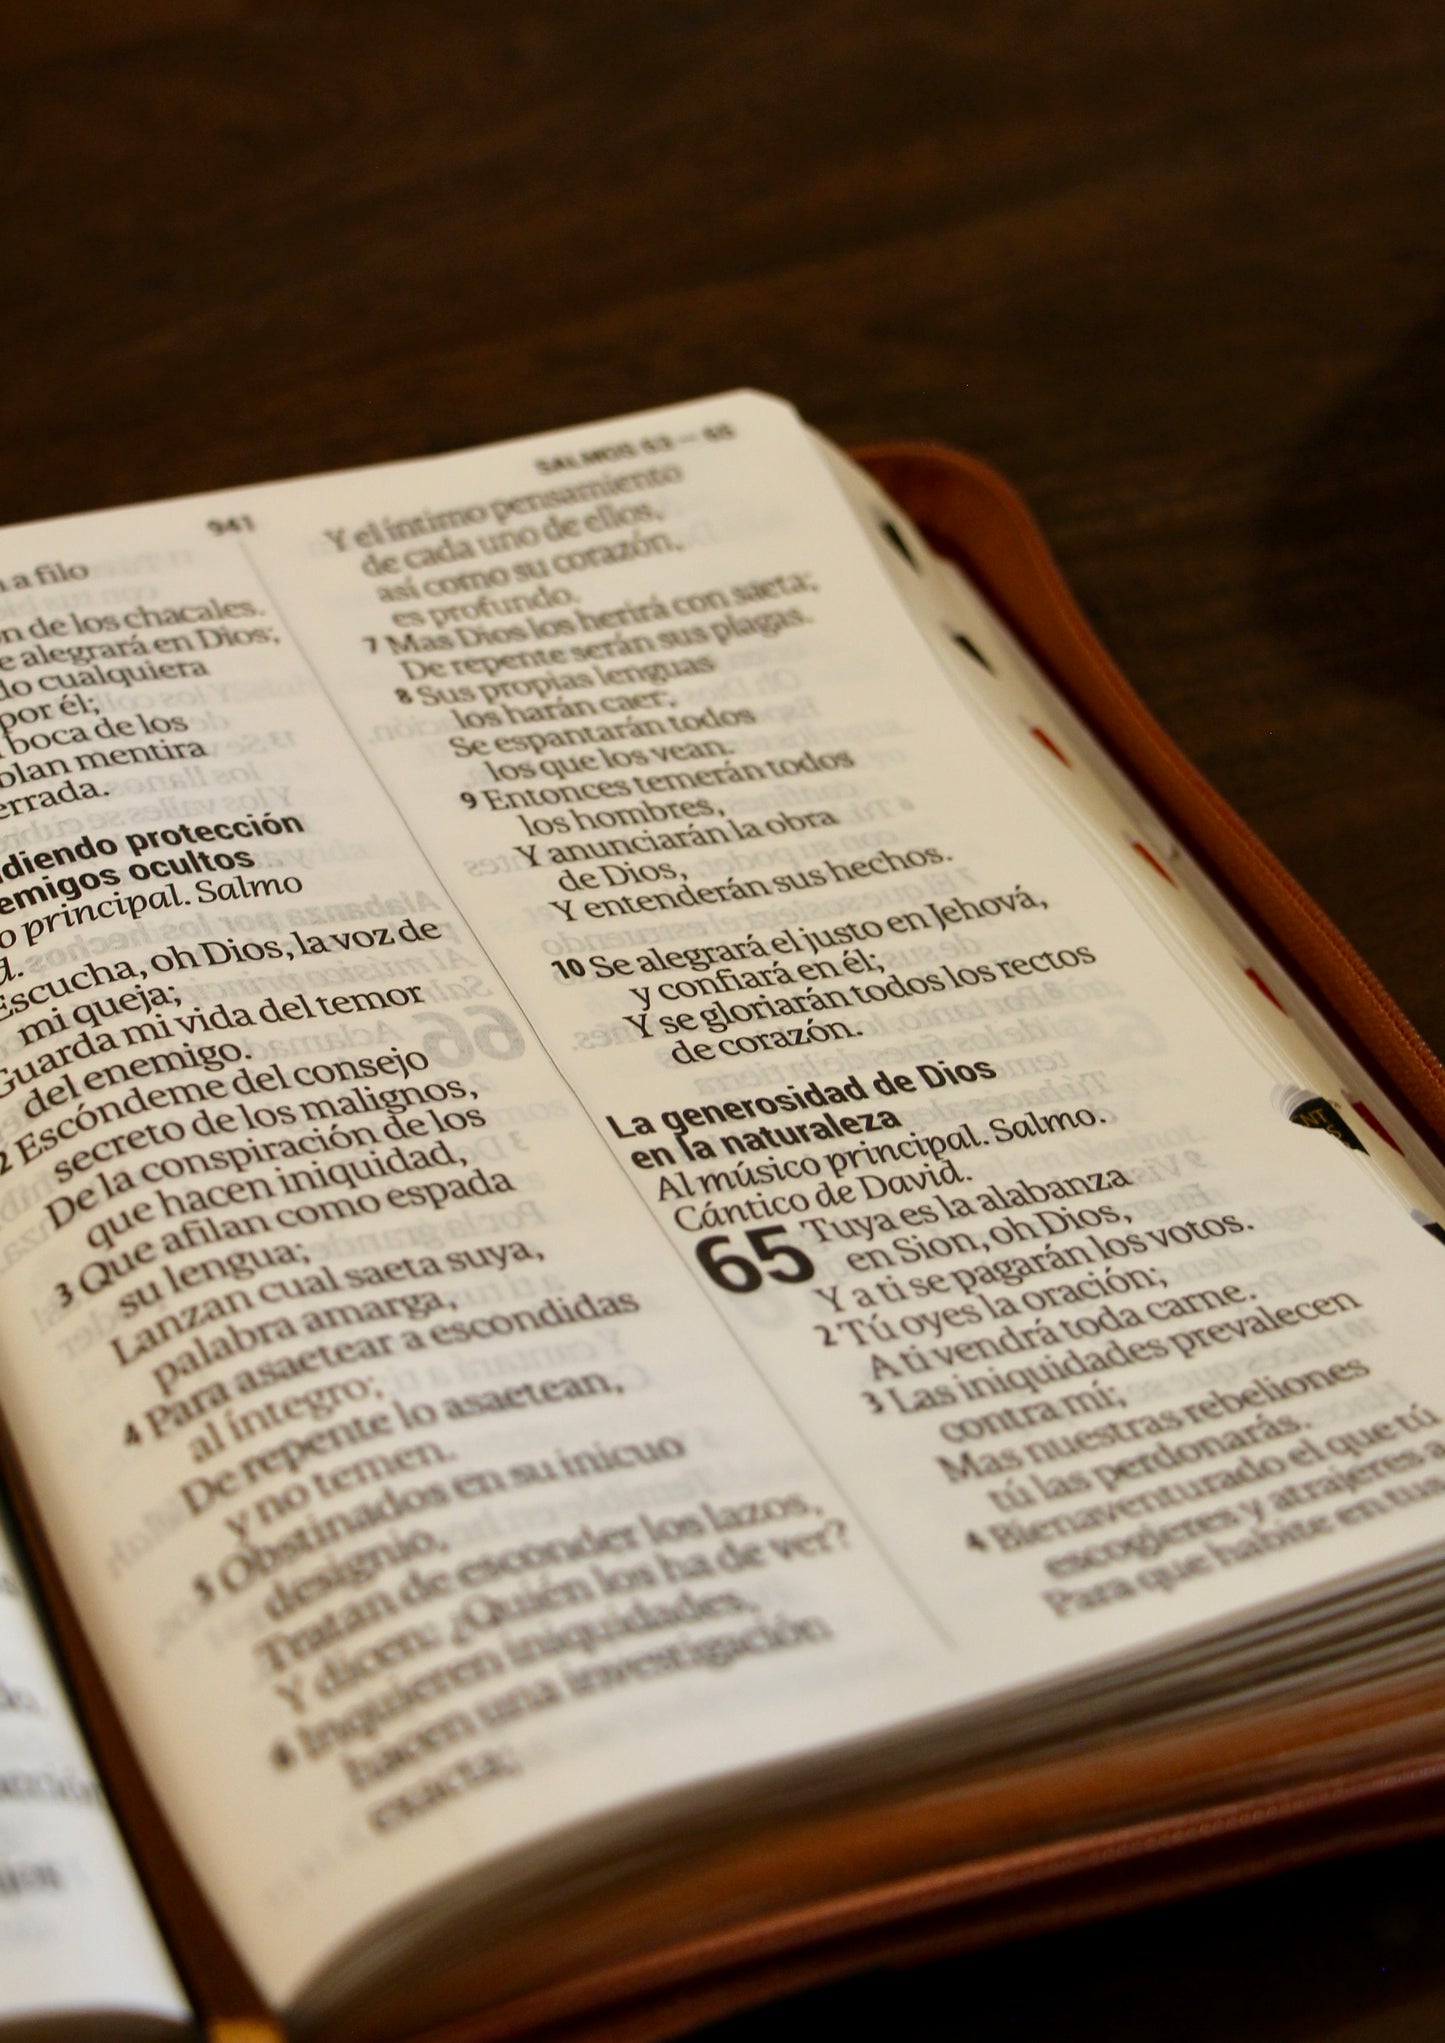 941
SALMOS 63 — 65
a filo
de los chacales.
alegrará en Dios;
cualquiera
por él;
boca de los
mentira
diendo protección
emigos ocultos
principal. Salmo
Escucha, oh Dios, la voz de
mi queja;
Guarda mi vida del temor
del enemigo.
2 Escóndeme del consejo
secreto de los malignos,
De la conspiración de los
que hacen iniquidad,
3 Que afilan como espada
su lengua;
Lanzan cual saeta suya,
palabra amarga,
4 Para asaetear a escondidas
al íntegro;
De repente lo asaetean,
y no temen.
5 Obstinados en su inicuo
designio,
Tratan de esconder los lazos,
Y dicen: ¿Quién los ha de ver?
6 Inquieren iniquidades,
hacen una investigación
exacta;
Y el íntimo pensamiento
de cada uno de ellos,
así como su corazón,
es profundo.
7 Mas Dios los herirá con saeta;
De repente serán sus plagas.
8 Sus propias lenguas
los harán caer;
Se espantarán todos
los que los vean.
9 Entonces temerán todos
los hombres,
Y anunciarán la obra
de Dios,
Y entenderán sus hechos.
10 Se alegrará el justo en Jehová,
y confiará en él;
Y se gloriarán todos los rectos
de corazón.
La generosidad de Dios
en la naturaleza
Al músico principal. Salmo.
Cántico de David.
65 Tuya es la alabanza
en Sion, oh Dios,
Y a ti se pagarán los votos.
2 Tú oyes la oración;
A ti vendrá toda carne.
3 Las iniquidades prevalecen
contra mí;
Mas nuestras rebeliones
tú las perdonarás.
4 Bienaventurado el que tú
escogieres y atrajeres a
Para que habite en tus